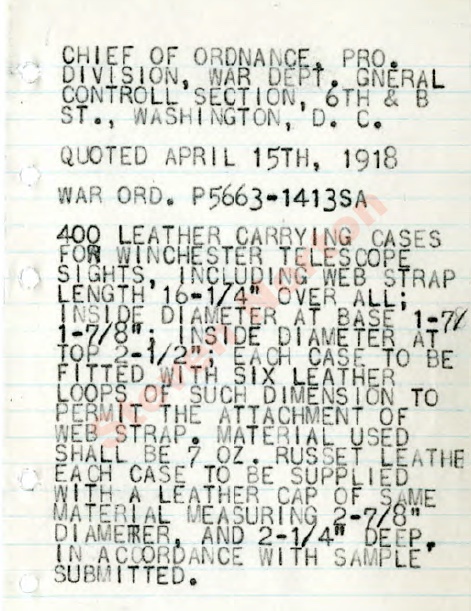 CHIEF OF ORDNANCE, PRO.
DIVISION, WAR DEPT. GNERAL
CONTROLL SECTION, 6TH & B
ST., WASHINGTON, D. C.
QUOTED APRIL 15TH, 1918
WAR ORD. P5663-1413SA
400 LEATHER CARRYING CASES
FOR WINCHESTER TELESCOPE
SIGHTS, INCLUDING WEB STRAP
LENGTH 16-1/4" OVER ALL;
INSIDE DIAMETER AT BASE 1-7/8
1-7/8"; INSIDE DIAMETER AT
TOP 2-1/2"; EACH CASE TO BE
FITTED WITH SIX LEATHER
LOOPS OF SUCH DIMENSION TO
PERMIT THE ATTACHMENT OF
WEB STRAP. MATERIAL USED
SHALL BE 7 OZ. RUSSET LEATHE
EACH CASE TO BE SUPPLIED
WITH A LEATHER CAP OF SAME
MATERIAL MEASURING 2-7/8"
DIAMETER, AND 2-1/4" DEEP,
IN ACCORDANCE WITH SAMPLE
SUBMITTED.